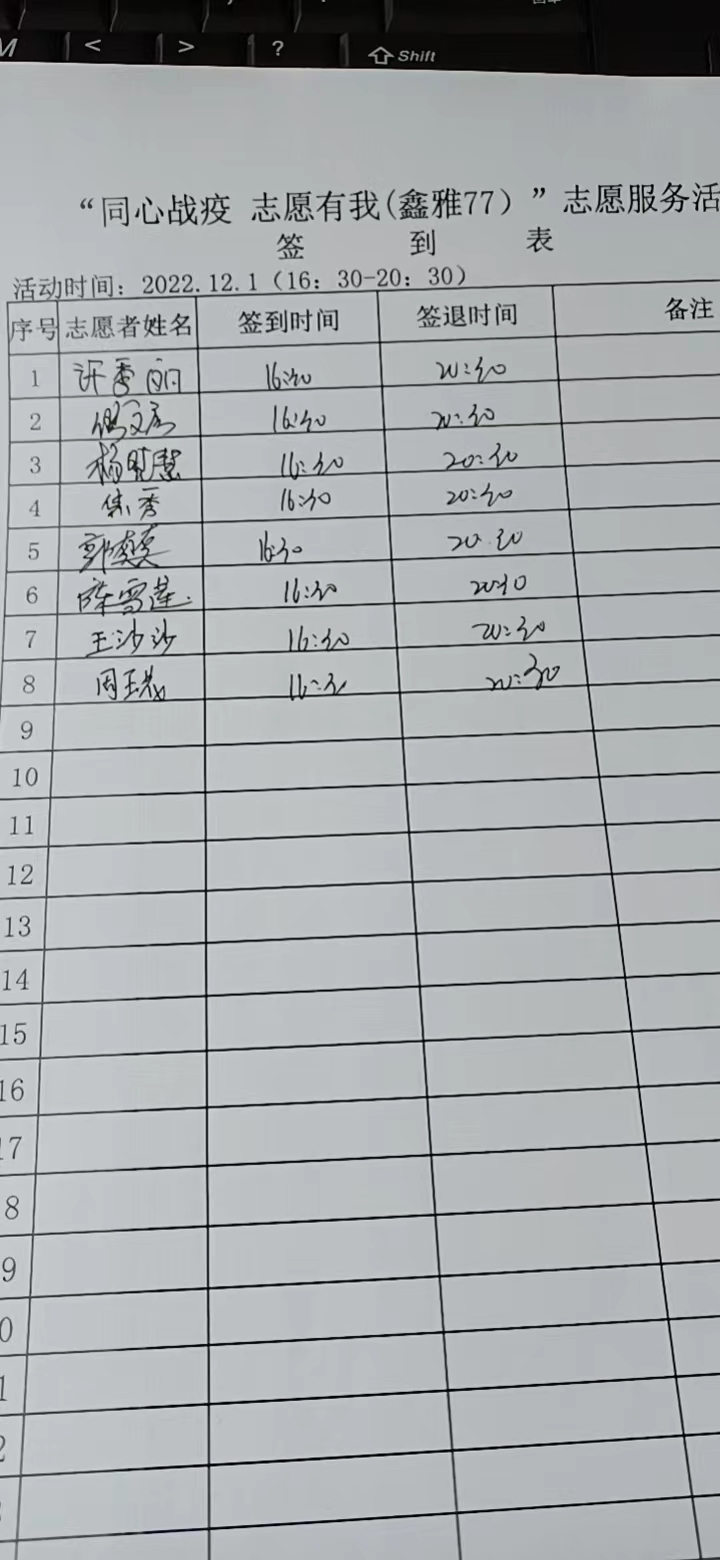 M < > ? Shift
“同心战疫 志愿有我(鑫雅77)”志愿服务活
签 到 表
活动时间：2022.12.1（16：30-20：30）
序号 志愿者姓名 签到时间 签退时间 备注
1 许秀丽 16:30 20:30
2 16:30 20:30
3 杨明慧 16:30 20:30
4 秀 16:30 20:30
5 郭 16:30 20:30
6 陈雪莲 16:30 20:30
7 王沙沙 16:30 20:30
8 周 16:30 20:30
9
10
11
12
13
14
15
16
17
8
9
0
1
2